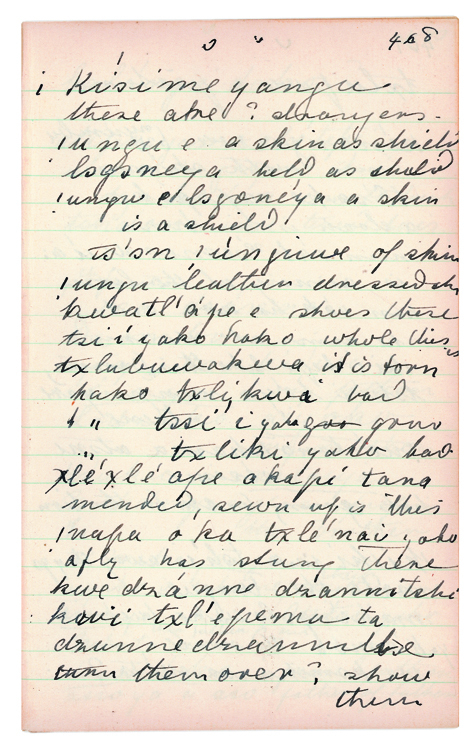 468
i Kisime yangu
these are? drawyers.
'ungu e a skin as shield
lsgsneya held as sheild
'ungu e lsgonéya a skin
is a shield
ts'sn 'únguwe of skin
'ungu leather dressed
kwatl'ápe e shoes these
tsi í yako hako whole this is
txlubuwakewa it is torn
hako txlíkwa bad
" tssi' i yako good
" txliki yako bad
xlé xlé ape akapí tana
mended, sewn up is this
'napa o ka txlé'nai yako
a fly has stung there
kwe dzánne dzannitshi
kwi txl'epema ta
dzunne
them over? show
them